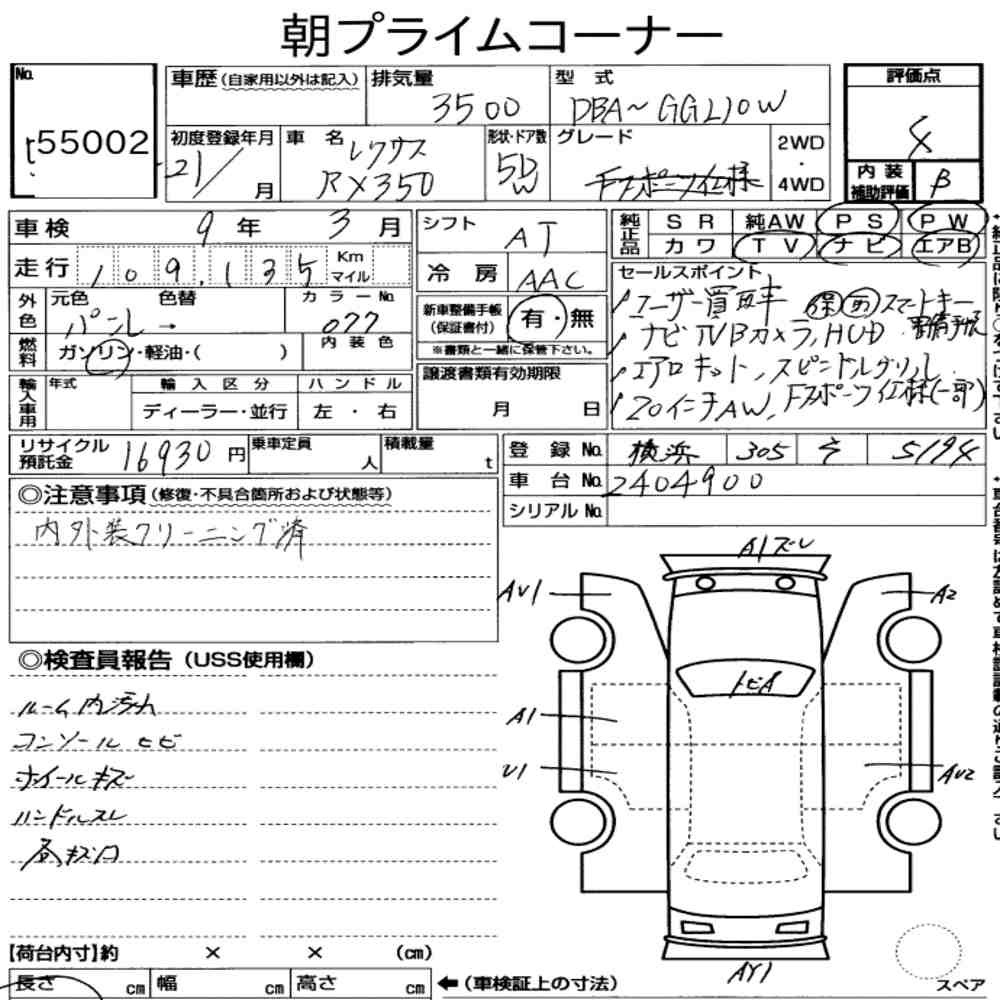 朝プライムコーナー
No. 55002
車歴（自家用以外は記入） 排気量 3500 型式 DBA~GGL10W 評価点 4
初度登録年月 21/ 月 車名 レクサス RX350 形状・ドア数 5D W グレード Fスポーツ仕様 2WD・4WD
内装補助評価 B
車検 9年 3月
走行 109,135 Km マイル
シフト AT
冷房 AAC
純正品 SR 純AW PS PW
カワ TV ナビ エアB
外色 元色 パール→ 色替 カラーNo. 077
燃料 ガソリン・軽油・( ) 内装色
新車整備手帳（保証書付） 有・無
※書類と一緒に保管下さい。
輸入車用 年式 輸入区分 ディーラー・並行 ハンドル 左・右
譲渡書類有効期限 月 日
セールスポイント
ユーザー買取車 保 取 スマートキー
ナビTVBカメラ,HUD
エアロキット,スピンドルグリル
20インチAW,Fスポーツ仕様(一部)
リサイクル預託金 16930円 乗車定員 人 積載量 t
登録No. 横浜 305 5194
車台No. 2404900
シリアルNo.
◎注意事項（修復・不具合箇所および状態等）
内外装クリーニング済
◎検査員報告（USS使用欄）
ルーム内汚れ
コンソールヒビ
ホイールキズ
ハンドルスレ
A1ズレ
AU1
A2
トビA
A1
U1
AU2
AY1
【荷台内寸】約 × × (cm)
長さ cm 幅 cm 高さ cm ←（車検証上の寸法）
スペア